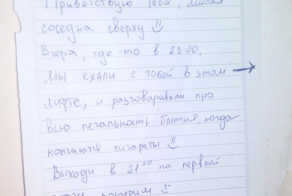 Приветствую тебя, милая
соседка сверху
Вчера, где-то в 23:00,
мы ехали с тобой в этом
лифте, и разговаривали про
всю печальность бытия, когда
кончаются сигареты
Выходи в 21:00 на первый
этаж покурим